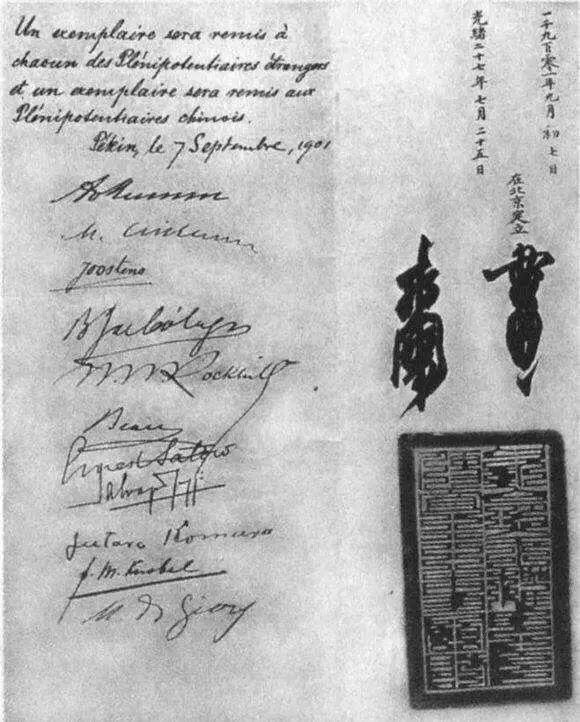 Un exemplaire sera remis à
chacun des Plénipotentiaires étrangers
et un exemplaire sera remis aux
Plénipotentiaires chinois.
Pékin, le 7 Septembre, 1901
Joostens
W W Rockhill
Beau
Ernest Satow
Salvago
Jutaro Komura
f. M. Knobel
M de Giers
一千九百零一年九月初七日
在北京定立
光緒二十七年七月二十五日